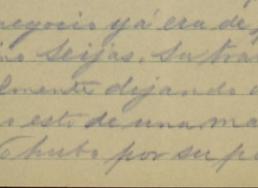 negocio ya era de
no Seijas. Su tra
lmente dijando
o esto de una ma
hubo por su pa